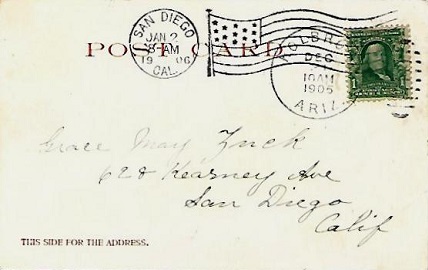 SAN DIEGO
JAN 2
8 AM
19 06
CAL.
POST CARD
HOLBRO
DEC
10 AM
1905
ARIZ
1
Grace May Zuck
628 Kearney Ave
San Diego
Calif
THIS SIDE FOR THE ADDRESS.